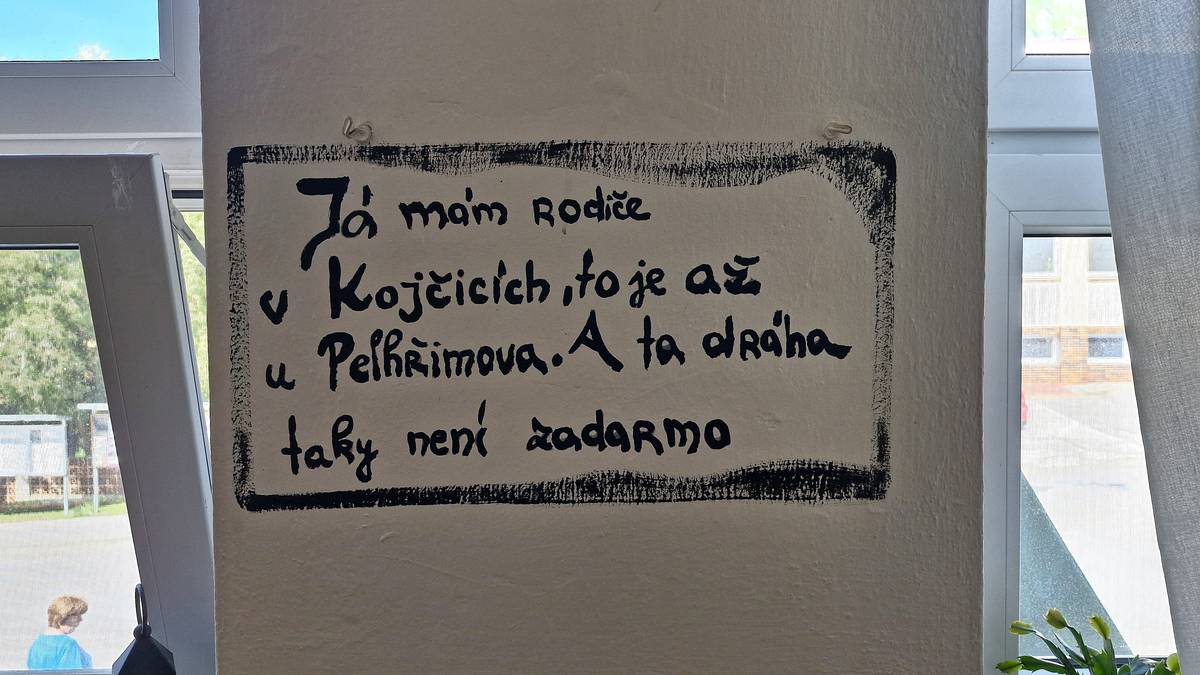 Já mám rodiče
v Kojčicích, to je až
u Pelhřimova. A ta dráha
taky není zadarmo